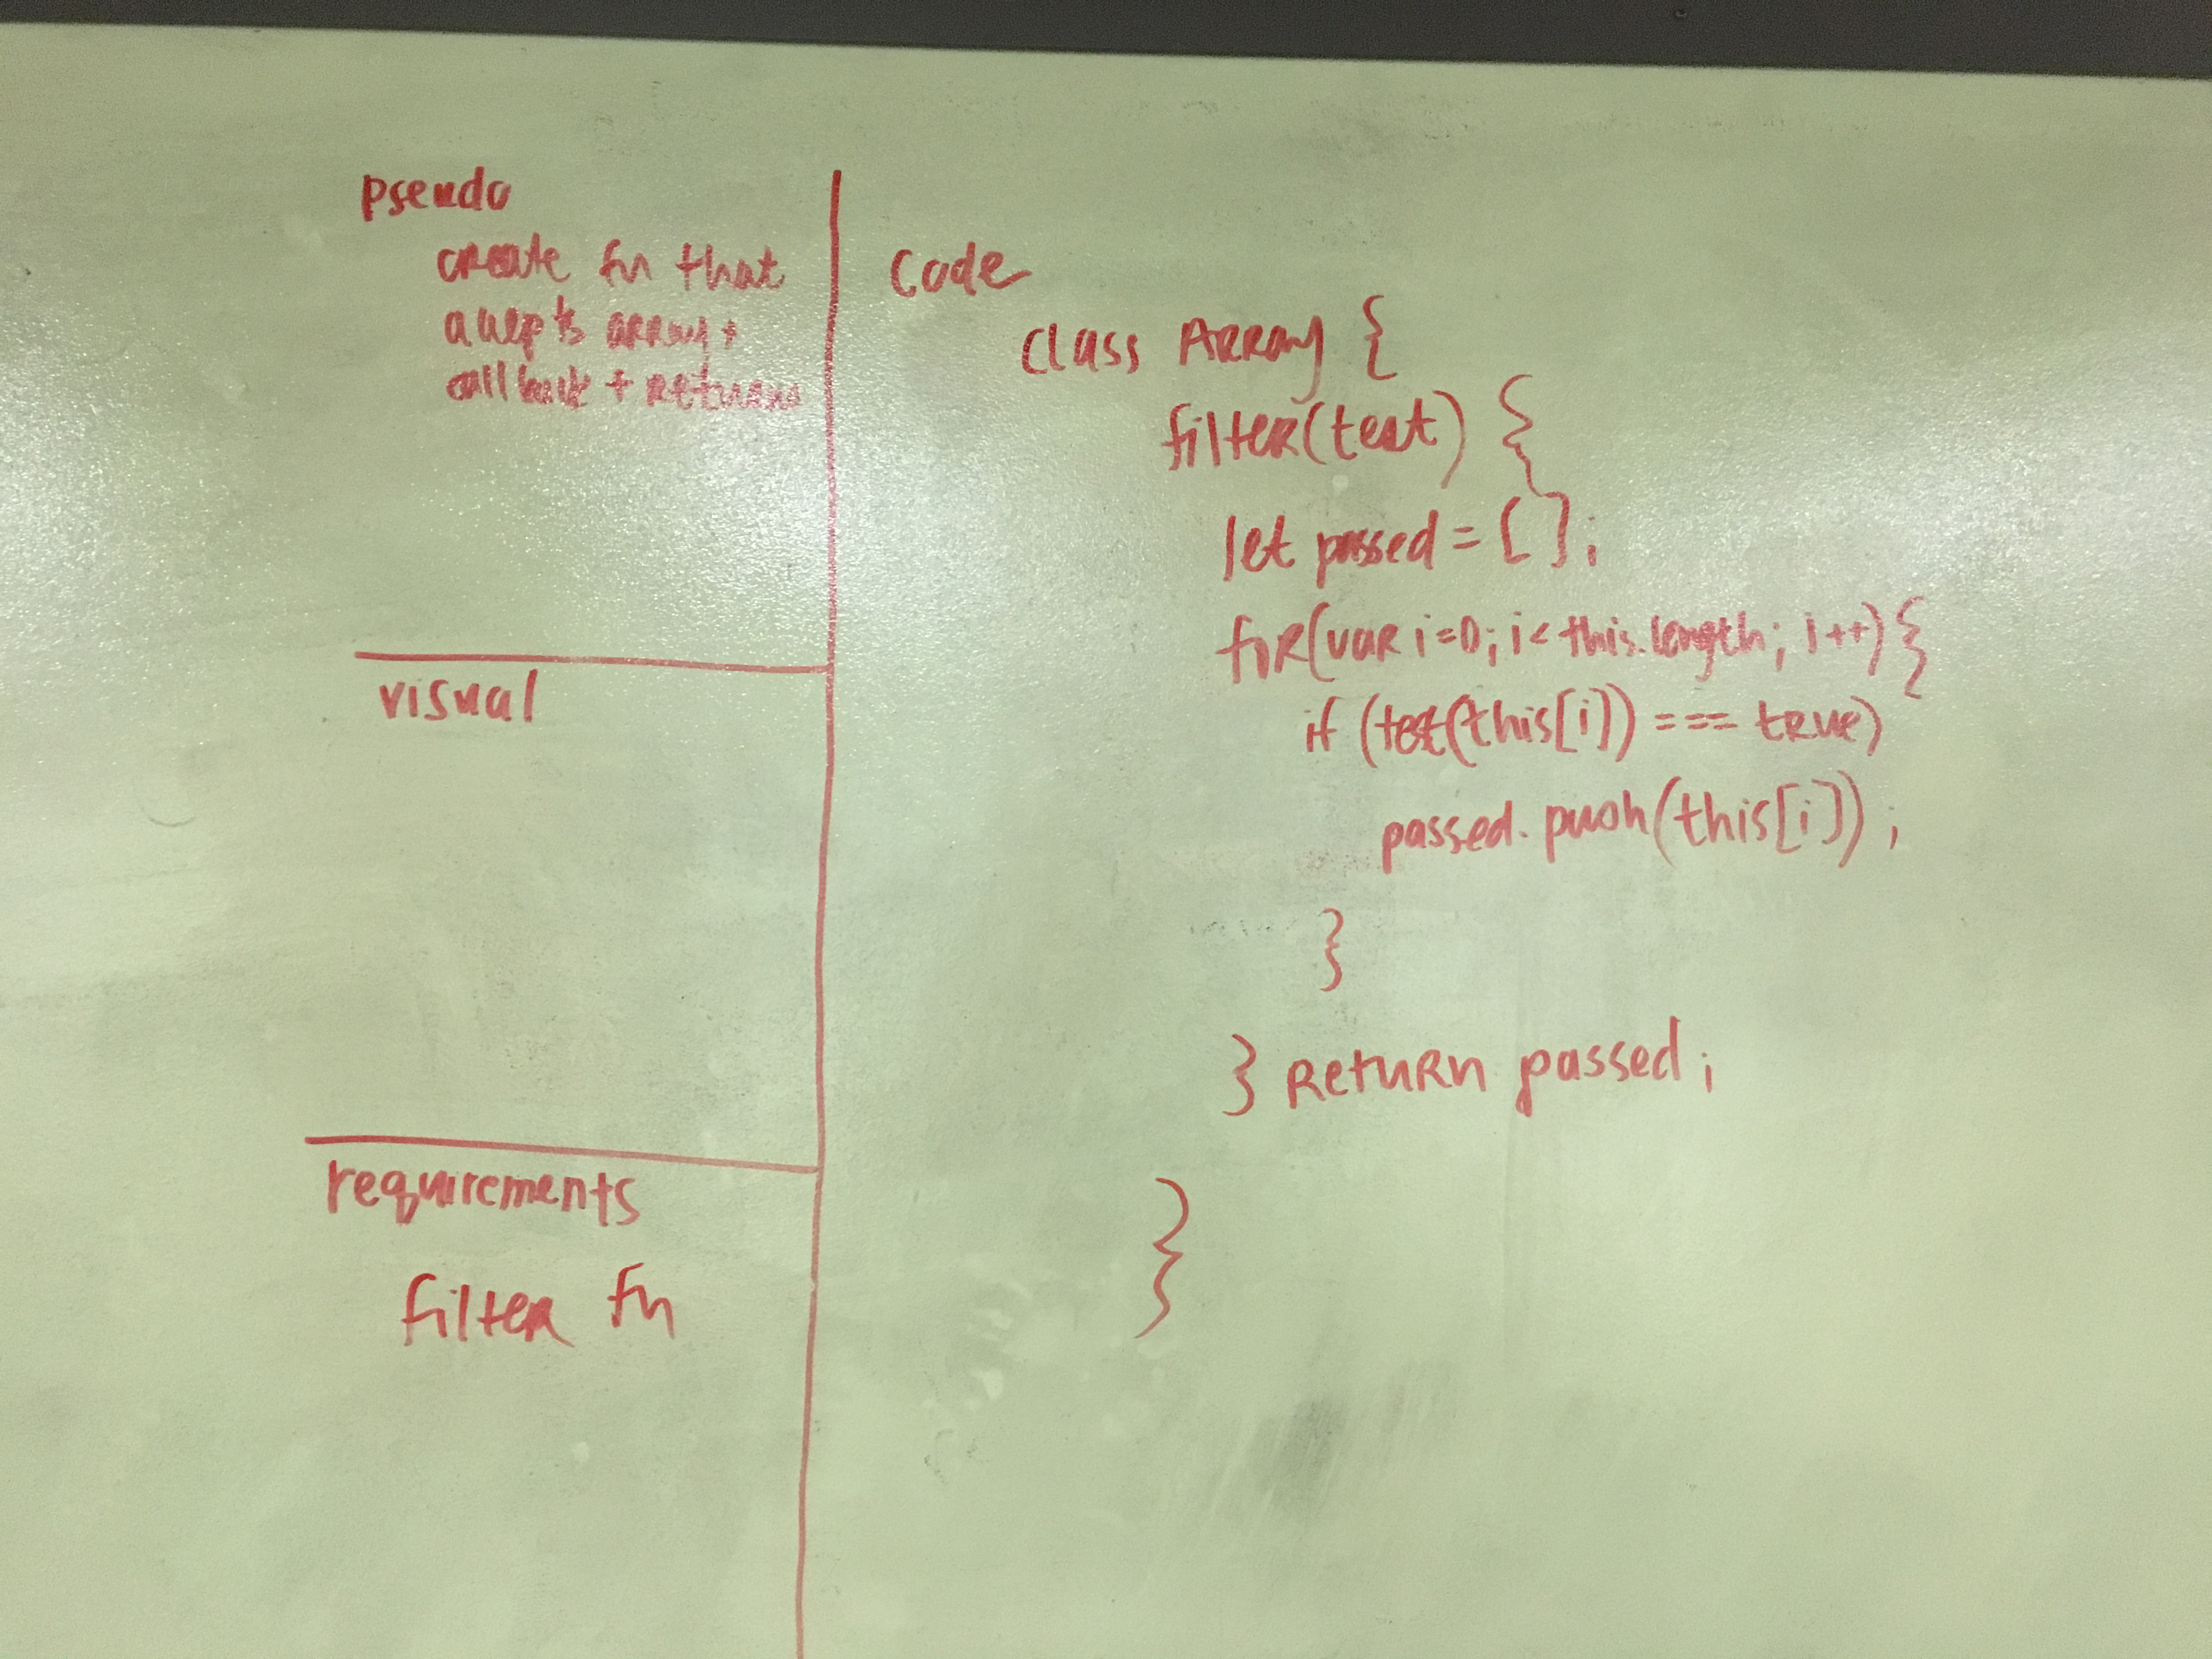 pseudo
create fn that
accepts array +
callback + returns
visual
requirements
filter fn
Code
class Array {
filter(test) {
let passed = [ ];
for(var i=0; i< this.length; i++) {
if (test(this[i]) === true)
passed.push(this[i]);
}
} return passed;
}